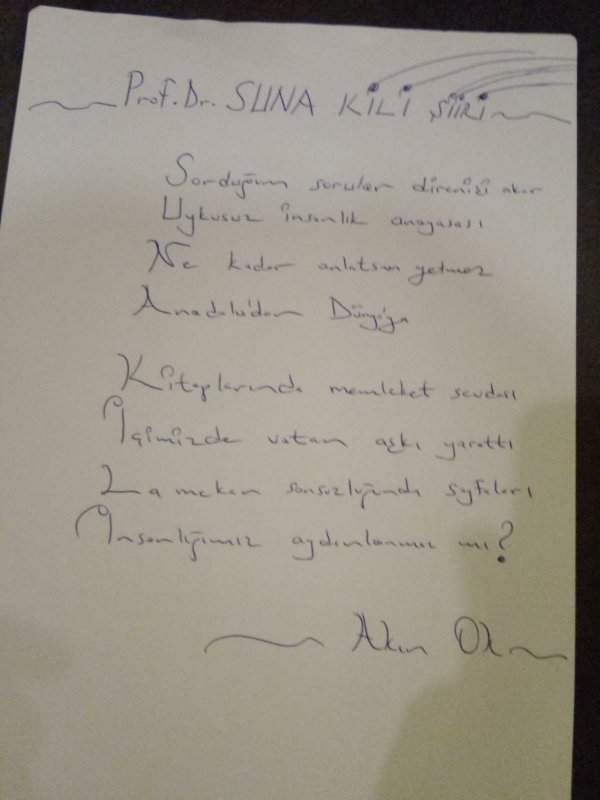 Prof. Dr. SUNA KİLİ ŞİİRİ
Sorduğum sorular direnişi akar
Uykusuz insanlık anayasası
Ne kadar anlatsam yetmez
Anadolu'dan Dünya'ya
Kitaplarında memleket sevdası
İçimizde vatan aşkı yarattı
La mekan sonsuzluğunda sayfaları
İnsanlığımız aydınlanmız mı?
Akın Ok